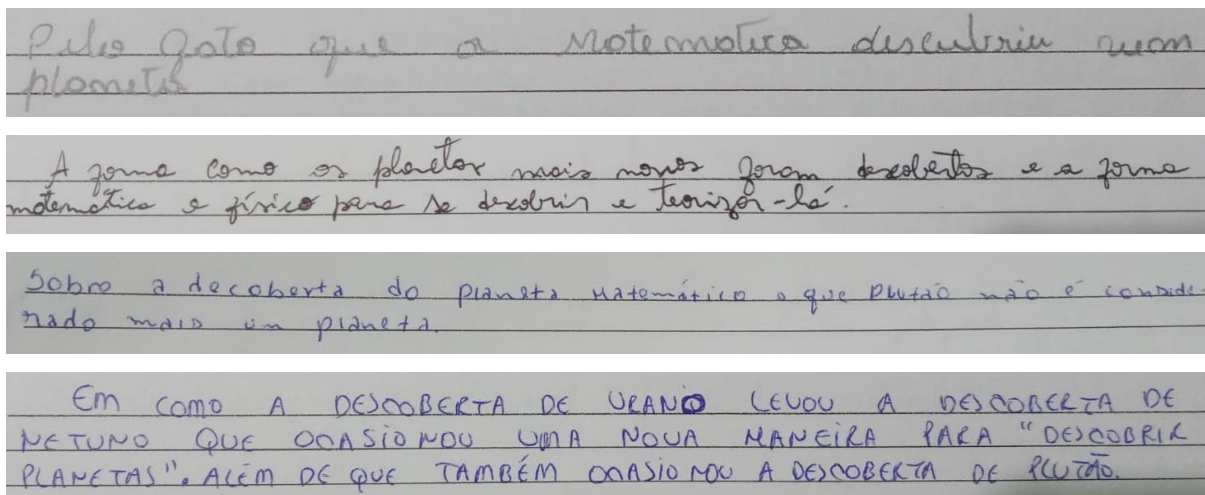 Pelo fato que a Matematica descubriu num
planeta
A forma como os planetas mais novos foram descobertos e a forma
matemática e física para se descobrir e teorizár-lá.
Sobre a decoberta do planeta Matemático e que Plutão não é conside-
rado mais um planeta.
Em como A DESCOBERTA DE URANO LEVOU A DESCOBERTA DE
NETUNO QUE OCASIONOU UMA NOVA MANEIRA PARA "DESCOBRIR
PLANETAS". ALÉM DE QUE TAMBÉM OCASIONOU A DESCOBERTA DE PLUTÃO.